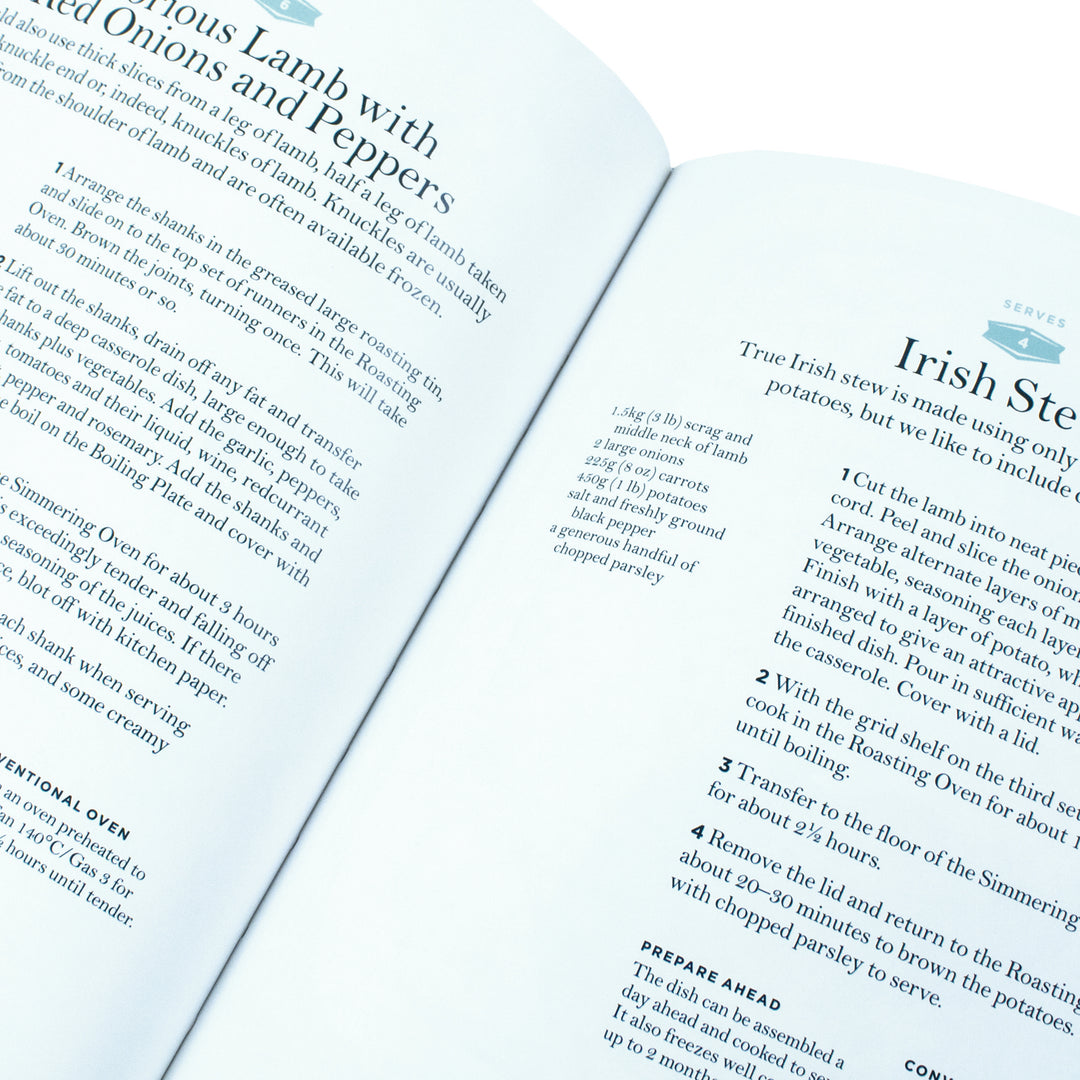 6
Lamb with
Red Onions and Peppers
also use thick slices from a leg of lamb, half a leg of lamb taken
knuckle end or, indeed, knuckles of lamb. Knuckles are usually
from the shoulder of lamb and are often available frozen.
1 Arrange the shanks in the greased large roasting tin,
and slide on to the top set of runners in the Roasting
Oven. Brown the joints, turning once. This will take
about 30 minutes or so.
2 Lift out the shanks, drain off any fat and transfer
fat to a deep casserole dish, large enough to take
shanks plus vegetables. Add the garlic, peppers,
tomatoes and their liquid, wine, redcurrant
pepper and rosemary. Add the shanks and
boil on the Boiling Plate and cover with
Simmering Oven for about 3 hours
exceedingly tender and falling off
seasoning of the juices. If there
blot off with kitchen paper.
each shank when serving
and some creamy
OVEN
an oven preheated to
140°C/Gas 3 for
hours until tender.
SERVES
4
Irish Ste
True Irish stew is made using only
potatoes, but we like to include
1.5kg (3 lb) scrag and
middle neck of lamb
2 large onions
225g (8 oz) carrots
450g (1 lb) potatoes
salt and freshly ground
black pepper
a generous handful of
chopped parsley
1 Cut the lamb into neat pie
cord. Peel and slice the onion
Arrange alternate layers of m
vegetable, seasoning each layer
Finish with a layer of potato, wh
arranged to give an attractive ap
finished dish. Pour in sufficient wa
the casserole. Cover with a lid.
2 With the grid shelf on the third set
cook in the Roasting Oven for about 1
until boiling.
3 Transfer to the floor of the Simmering
for about 2½ hours.
4 Remove the lid and return to the Roasting
about 20–30 minutes to brown the potatoes.
with chopped parsley to serve.
PREPARE AHEAD
The dish can be assembled a
day ahead and cooked to se
It also freezes well co
up to 2 months
CONV